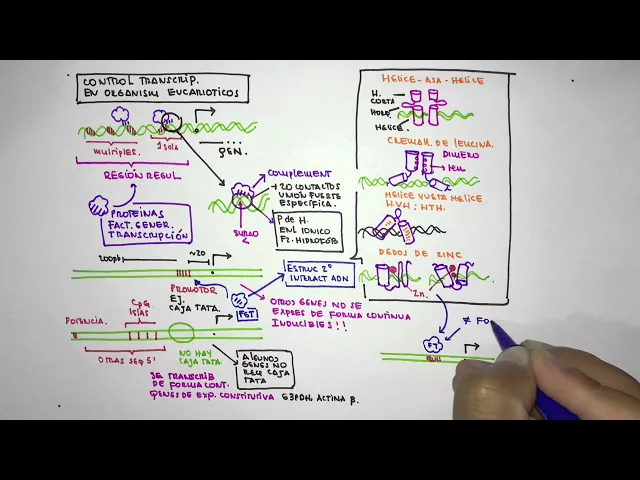 CONTROL TRANSCRIP.
EN ORGANISM EUCARIOTICOS
multiples.
1 sola
GEN.
REGION REGUL.
PROTEINAS
FACT. GENER.
TRANSCRIPCIÓN
COMPLEMENT
+20 CONTACTOS
UNION FUERTE
ESPECIFICA.
SURCO
P DE H.
ENL IONICO
200pb
~20
PROMOTOR
EJ.
CAJA TATA.
FGT
ESTRUC 2°
INTERACT ADN
OTROS GENES NO SE
EXPRES DE FORMA CONTINUA
INDUCIBLES!!
POTENCIA.
CpG
ISLAS
OTRAS SEQ 5'
NO HAY
CAJA TATA.
ALGUNOS
GENES NO
CAJA
TATA
SE TRANSCRIB
DE FORMA CONT.
GENES DE EXP. CONSTITUTIVA G3PDH, ACTINA β.
HELICE-ASA-HELICE
H.
CORTA
HELICE
CREMALL. DE LEUCINA.
DIMERO
HELICE VUELTA HELICE
H.V.H; HTH.
DEDOS DE ZINC
Zn.
FT
≠ FO